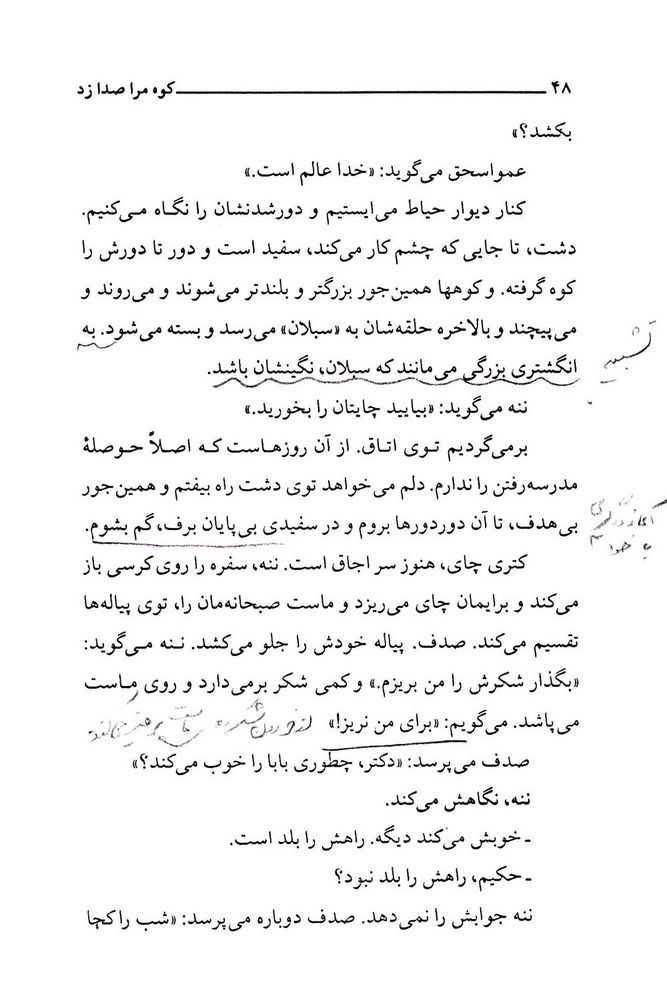 ۴۸ کوه مرا صدا زد
بکشد؟»
عمواسحق می‌گوید: «خدا عالم است.»
کنار دیوار حیاط می‌ایستیم و دورشدنشان را نگاه می‌کنیم.
دشت، تا جایی که چشم کار می‌کند، سفید است و دور تا دورش را
کوه گرفته. و کوهها همین‌جور بزرگتر و بلندتر می‌شوند و می‌روند و
می‌پیچند و بالاخره حلقه‌شان به «سبلان» می‌رسد و بسته می‌شود. به
انگشتری بزرگی می‌مانند که سبلان، نگینشان باشد.
تشبیه
ننه می‌گوید: «بیایید چایتان را بخورید.»
برمی‌گردیم توی اتاق. از آن روزهاست که اصلاً حوصلهٔ
مدرسه‌رفتن را ندارم. دلم می‌خواهد توی دشت راه بیفتم و همین‌جور
بی‌هدف، تا آن دوردورها بروم و در سفیدی بی‌پایان برف، گم بشوم.
کتری چای، هنوز سر اجاق است. ننه، سفره را روی کرسی باز
می‌کند و برایمان چای می‌ریزد و ماست صبحانه‌مان را، توی پیاله‌ها
تقسیم می‌کند. صدف. پیاله خودش را جلو می‌کشد. ننه می‌گوید:
«بگذار شکرش را من بریزم.» و کمی شکر برمی‌دارد و روی ماست
می‌پاشد. می‌گویم: «برای من نریز!»
صدف می‌پرسد: «دکتر، چطوری بابا را خوب می‌کند؟»
ننه، نگاهش می‌کند.
ـ خوبش می‌کند دیگه. راهش را بلد است.
ـ حکیم، راهش را بلد نبود؟
ننه جوابش را نمی‌دهد. صدف دوباره می‌پرسد: «شب را کجا